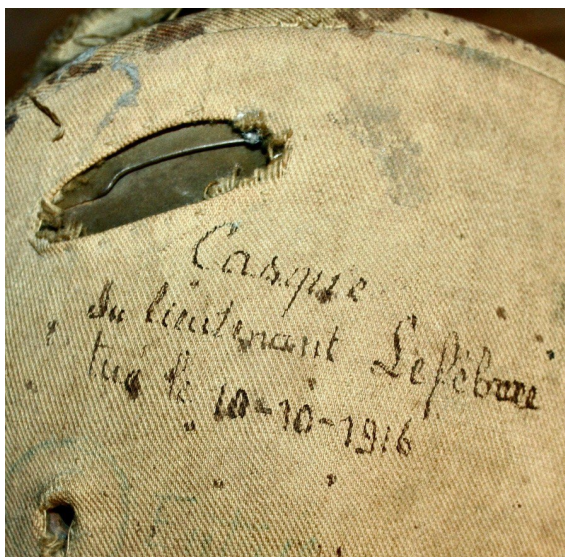 Casque
du lieutenant Lefébvre
tué le 10-10-1916